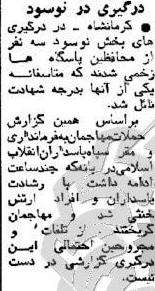 درگیری در نوسود
● کرمانشاه - در درگیری
های بخش نوسود سه نفر
از محافظین پاسگاه ها
زخمی شدند که متاسفانه
یکی از آنها بدرجه شهادت
نائل شد.
براساس همین گزارش
حملات مهاجمان به فرمانداری
و مقر سپاه پاسداران انقلاب
اسلامی در پاوه که چند ساعت
ادامه داشت با رشادت
پاسداران و افراد ارتش
خنثی شد و مهاجمان
گریختند از تلفات و
مجروحین احتمالی این
درگیری گزارشی در دست
نیست.